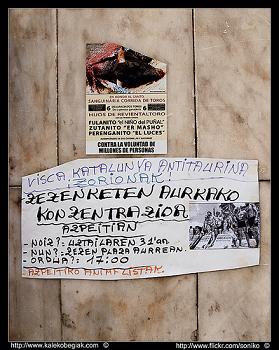 EN HONOR AL SANTO
SANGUINARIA CORRIDA DE TOROS
6 6
HIJOS DE REVIENTALTORO
FULANITO "el NIÑO del PUÑAL"
ZUTANITO "ER MASHO"
PERENGANITO "EL LUCES"
CONTRA LA VOLUNTAD DE
MILLONES DE PERSONAS
VISCA KATALUNYA ANTITAURINA
ZORIONAK
ZEZENKETEN AURKAKO
KONZENTRAZIOA
AZPEITIAN
- NOIZ?: UZTAILAREN 31an
- NUN?: ZEZEN PLAZA AURREAN.
- ORDUA?: 17:00
AZPEITIKO ANIMALISTAK.
www.kalekobegiak.com
www.flickr.com/soniko